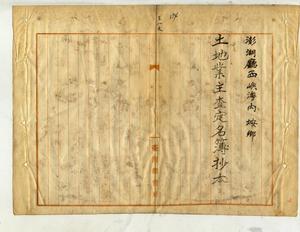 澎湖廳西嶼海內垵鄉
土地業主查定名簿抄本